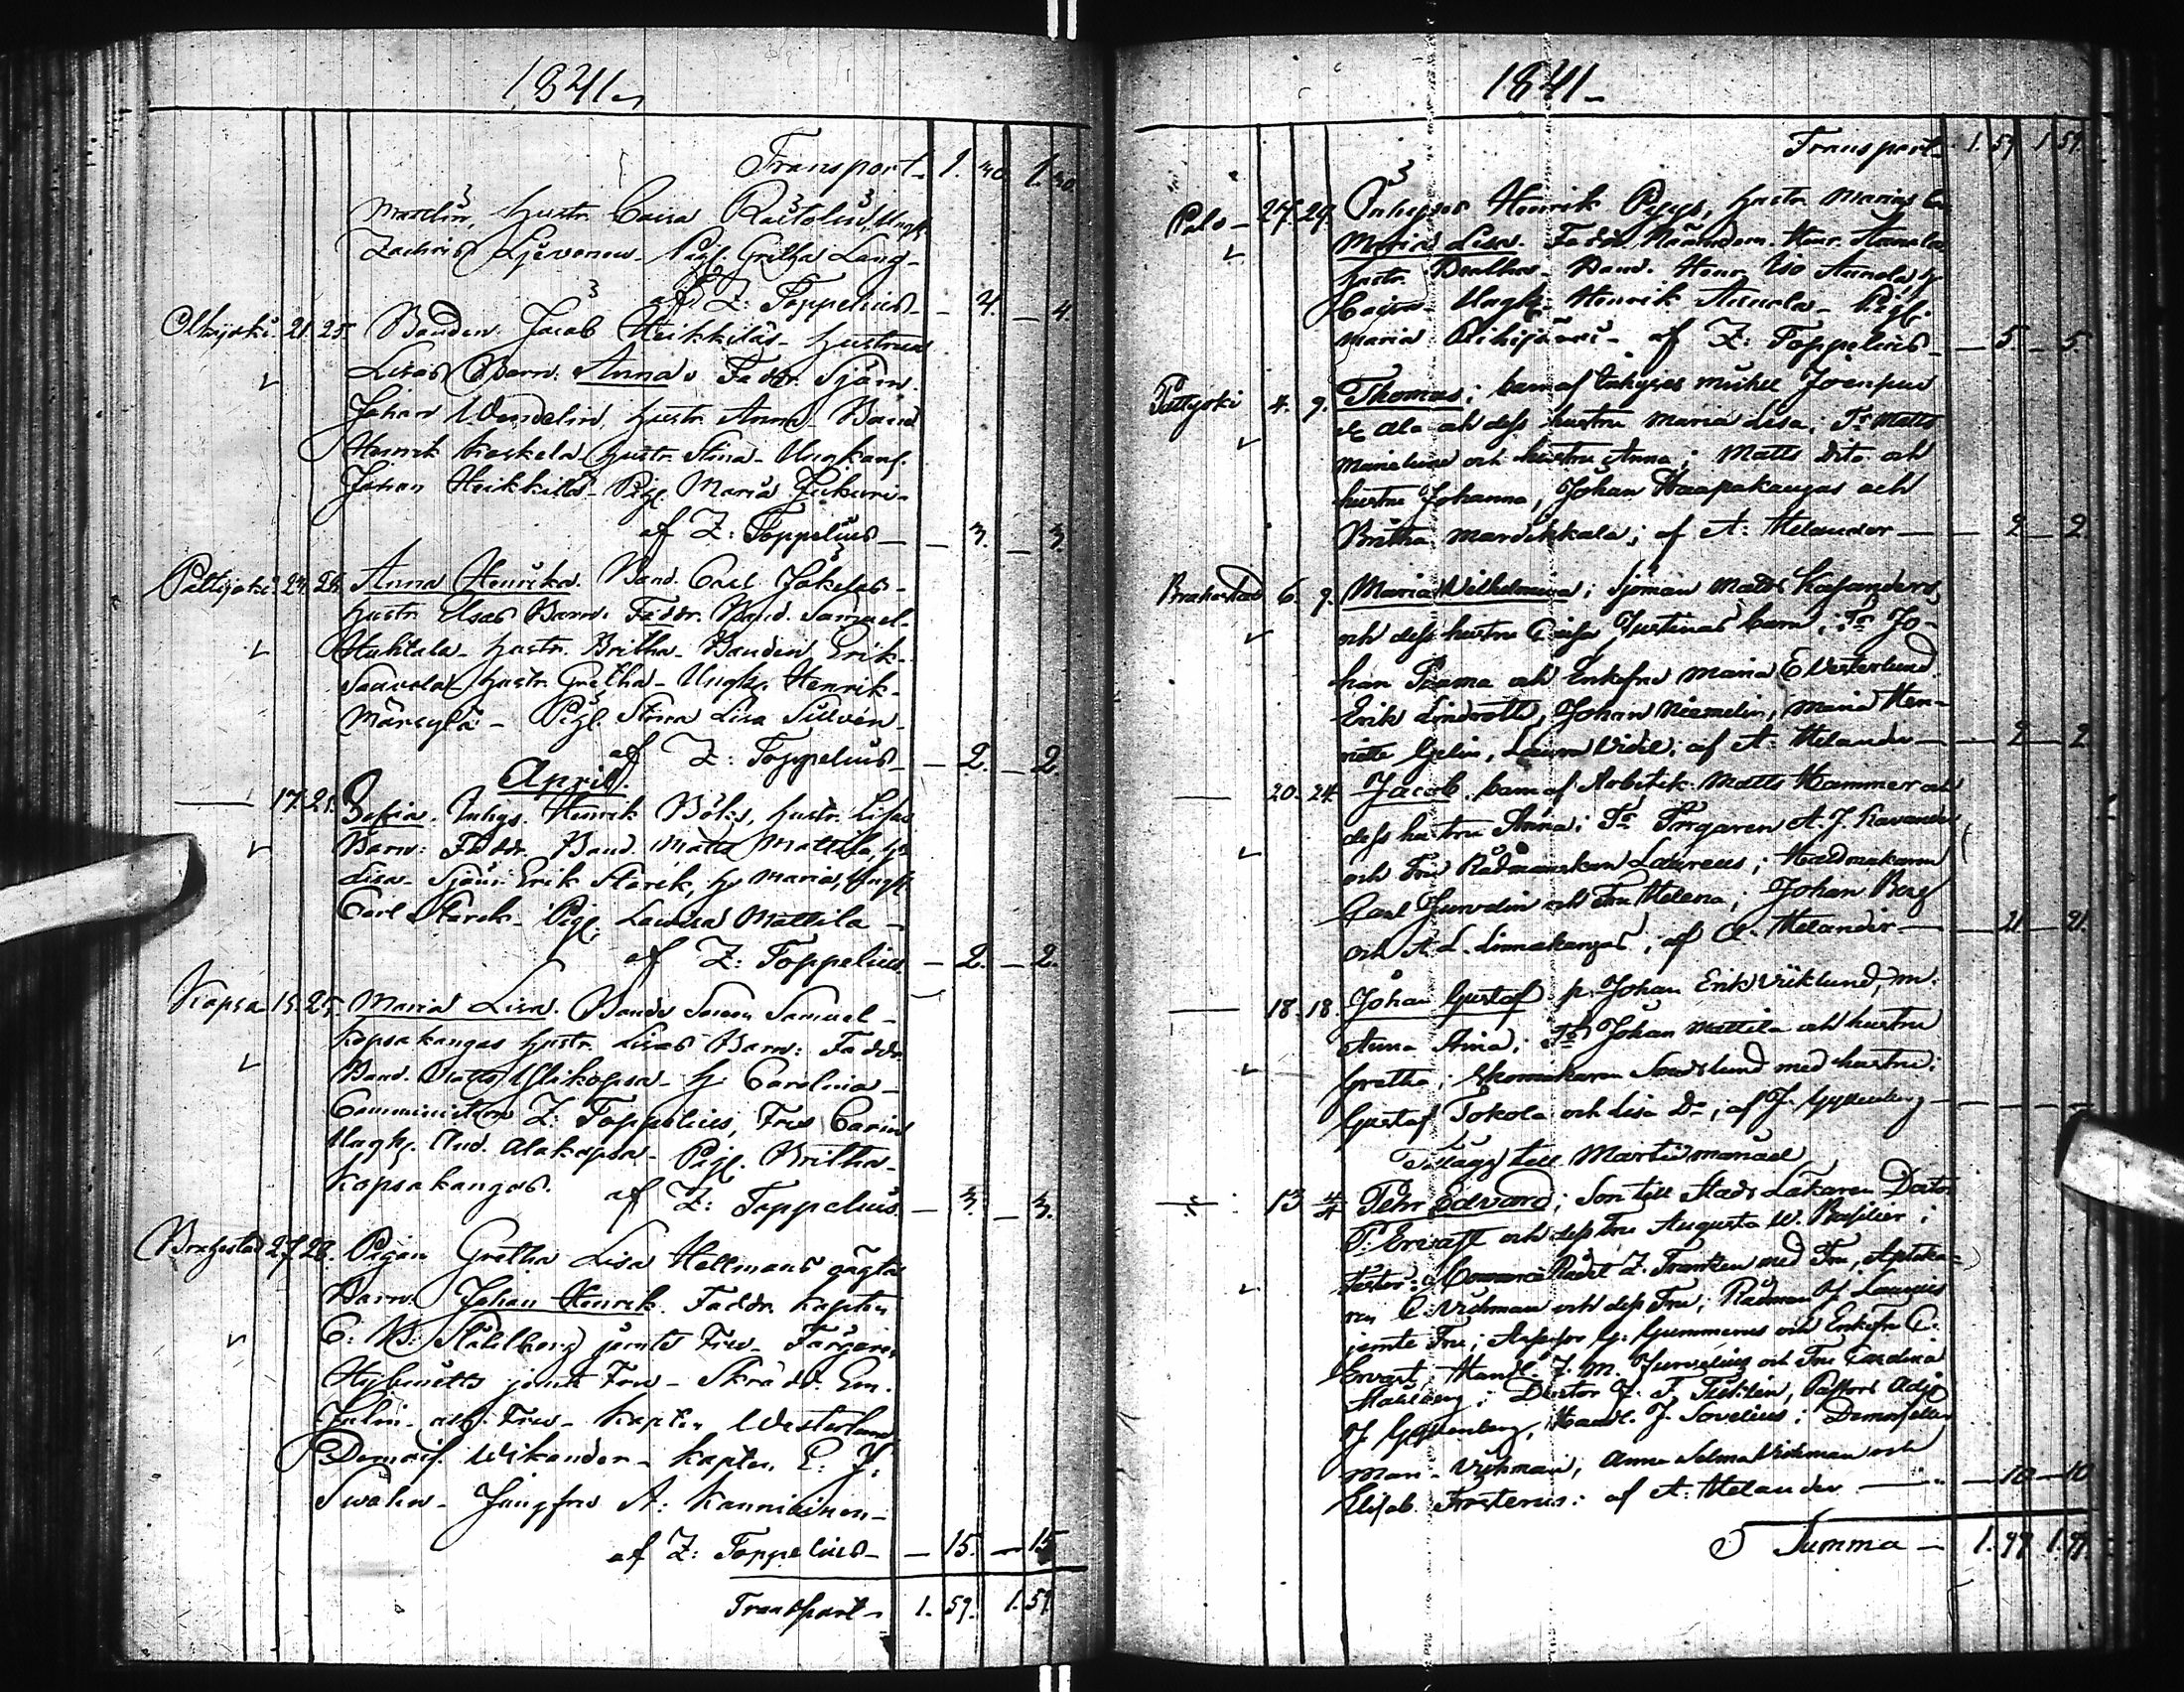 1841
Transport 1. 30 1. 30
hustr. Caisa Ungk.
Zachris Pig. Gretha Lang-
af Z: Toppelius — 4. — 4.
Olkijoki 21. 25. Bonden Jacob Heikkilas hustrus
Lisas Barn: Anna. Faddr. Sjöm.
Johan Wendelin, hustr. Anna - Bond
Henrik Koskela hustr. Stina - Ungkarl.
Johan Heikkilä - Pig. Maria
af Z: Toppelius — 3. — 3.
Pattijoki 24. 25. Anna Henrika. Bond. Carl Jokelas
hustr. Elsas Barn. Faddr. Bond. Samuel
Huhtala - hustr. Britha - Bonden Erik
hustr. Gretha - Ungk. Henrik
Pig. Stina Lisa
af Z: Toppelius — 2. — 2.
April.
— 17. 25. Sofia. Inhys. Henrik Böks, hustr. Lisas
Barn: Faddr. Bond. Matts Mattila, h.
Lisa - Sjöm: Erik Starck, h. Maria, Ungk.
Carl Starck - Pig. Lovisa Mattila
af Z: Toppelius — 2. — 2.
Kopsa 15. 25. Maria Lisa. Bonde Sonen Samuel
Kopsakangas hustr. Lisas Barn: Faddr.
Bond. Matts Ylikopsa - h. Carolina -
Comministern Z: Toppelius, Fru Carin
Ungk. And. Alakopsa - Pig. Britha
Kopsakangas. af Z: Toppelius — 3. — 3.
Brahestad 27. 28. Pigan Gretha Lisa Hellmans oägta
Barn. Johan Henrik. Faddr. Kapten
C: B: Ståhlberg jemte Fru - Färgaren
jemte Fru - Skrädd. Em.
Julin - och Fru - Kapten Westerlund
Demois. Wikander - Kapten E: J:
Swahn - Jungfru A: Kanniainen -
af Z: Toppelius — 15. — 15
Transport 1. 59. 1. 59
1841
Transport 1. 59 1 59.
Palo - 27. 29. Inhyses Henrik Pyys, hustr. Marias
Maria Lisa. Faddr. Nämndem. Henr. Annala
hustr. Brita - Bond. Henr. Iso Annala, h.
Caisa - Ungk. Henrik Annala - Pig.
Maria Pihkajärvi - af Z: Toppelius — 5. — 5.
Pattijoki 4. 9. Thomas; barn af Inhyses Michel Joenpuu
och dess hustru Maria Lisa; Fr Matts
och hustru Anna; Matts dito och
hustru Johanna, Johan Haapakangas och
Britha Mardikkala; af A: Melander — 2 — 2.
Brahestad 6. 9. Maria Wilhelmina; Sjöman Matts Kajanders
och dess hustru Caisa Justinas barn; Fr Jo-
han och Enkefru Maria E Westerlund.
Erik Lindroth, Johan Niemelin, Maria Hen-
riette Gelin, Laura af A: Melander — 2 — 2
— 20. 24 Jacob. barn af Arbetsk. Matts Hammer och
dess hustru Anna; Fr Färgaren A. J. Ravander
och Fru Rådmanskan Laureus; Hattmakaren
Carl Jurvelin och Fru Helena; Johan Berg
och A. L. Linnakangas; af A: Melander — 21 — 21.
— 18. 18. Johan Gustaf p. Johan Erik Wiklund, m.
Anna Aina; Fr Johan Mattila och hustru
Gretha; Skomakaren Sandslund med hustru:
Gustaf Tokola och Lisa Do; af J. Gyllenberg — —
Tillägg till Martii månad
— 13 4/4 Pehr Edvard; Son till Stads Läkaren Doctor
P. Ervast och dess Fru Augusta W. Basilier;
Test: Commerce Rådet Z. Franzén med Fru, Apteka-
ren C. Wichman och dess Fru; Rådman J. Laureus
jemte Fru; Assessor G. Gummerus och Enkefru C.
Ervast, Handl. J. M. Jurvelius och Fru Carolina
Ståhlberg; Doctor J. F. Pastors Adj.
J Gyllenberg, Handl. J. Sovelius; Demoiseller
Mari Wichman, Anna Selma Wichman och
Elisab. Frosterus: af A: Melander — 10 — 10
Summa — 1. 99 1. 99.